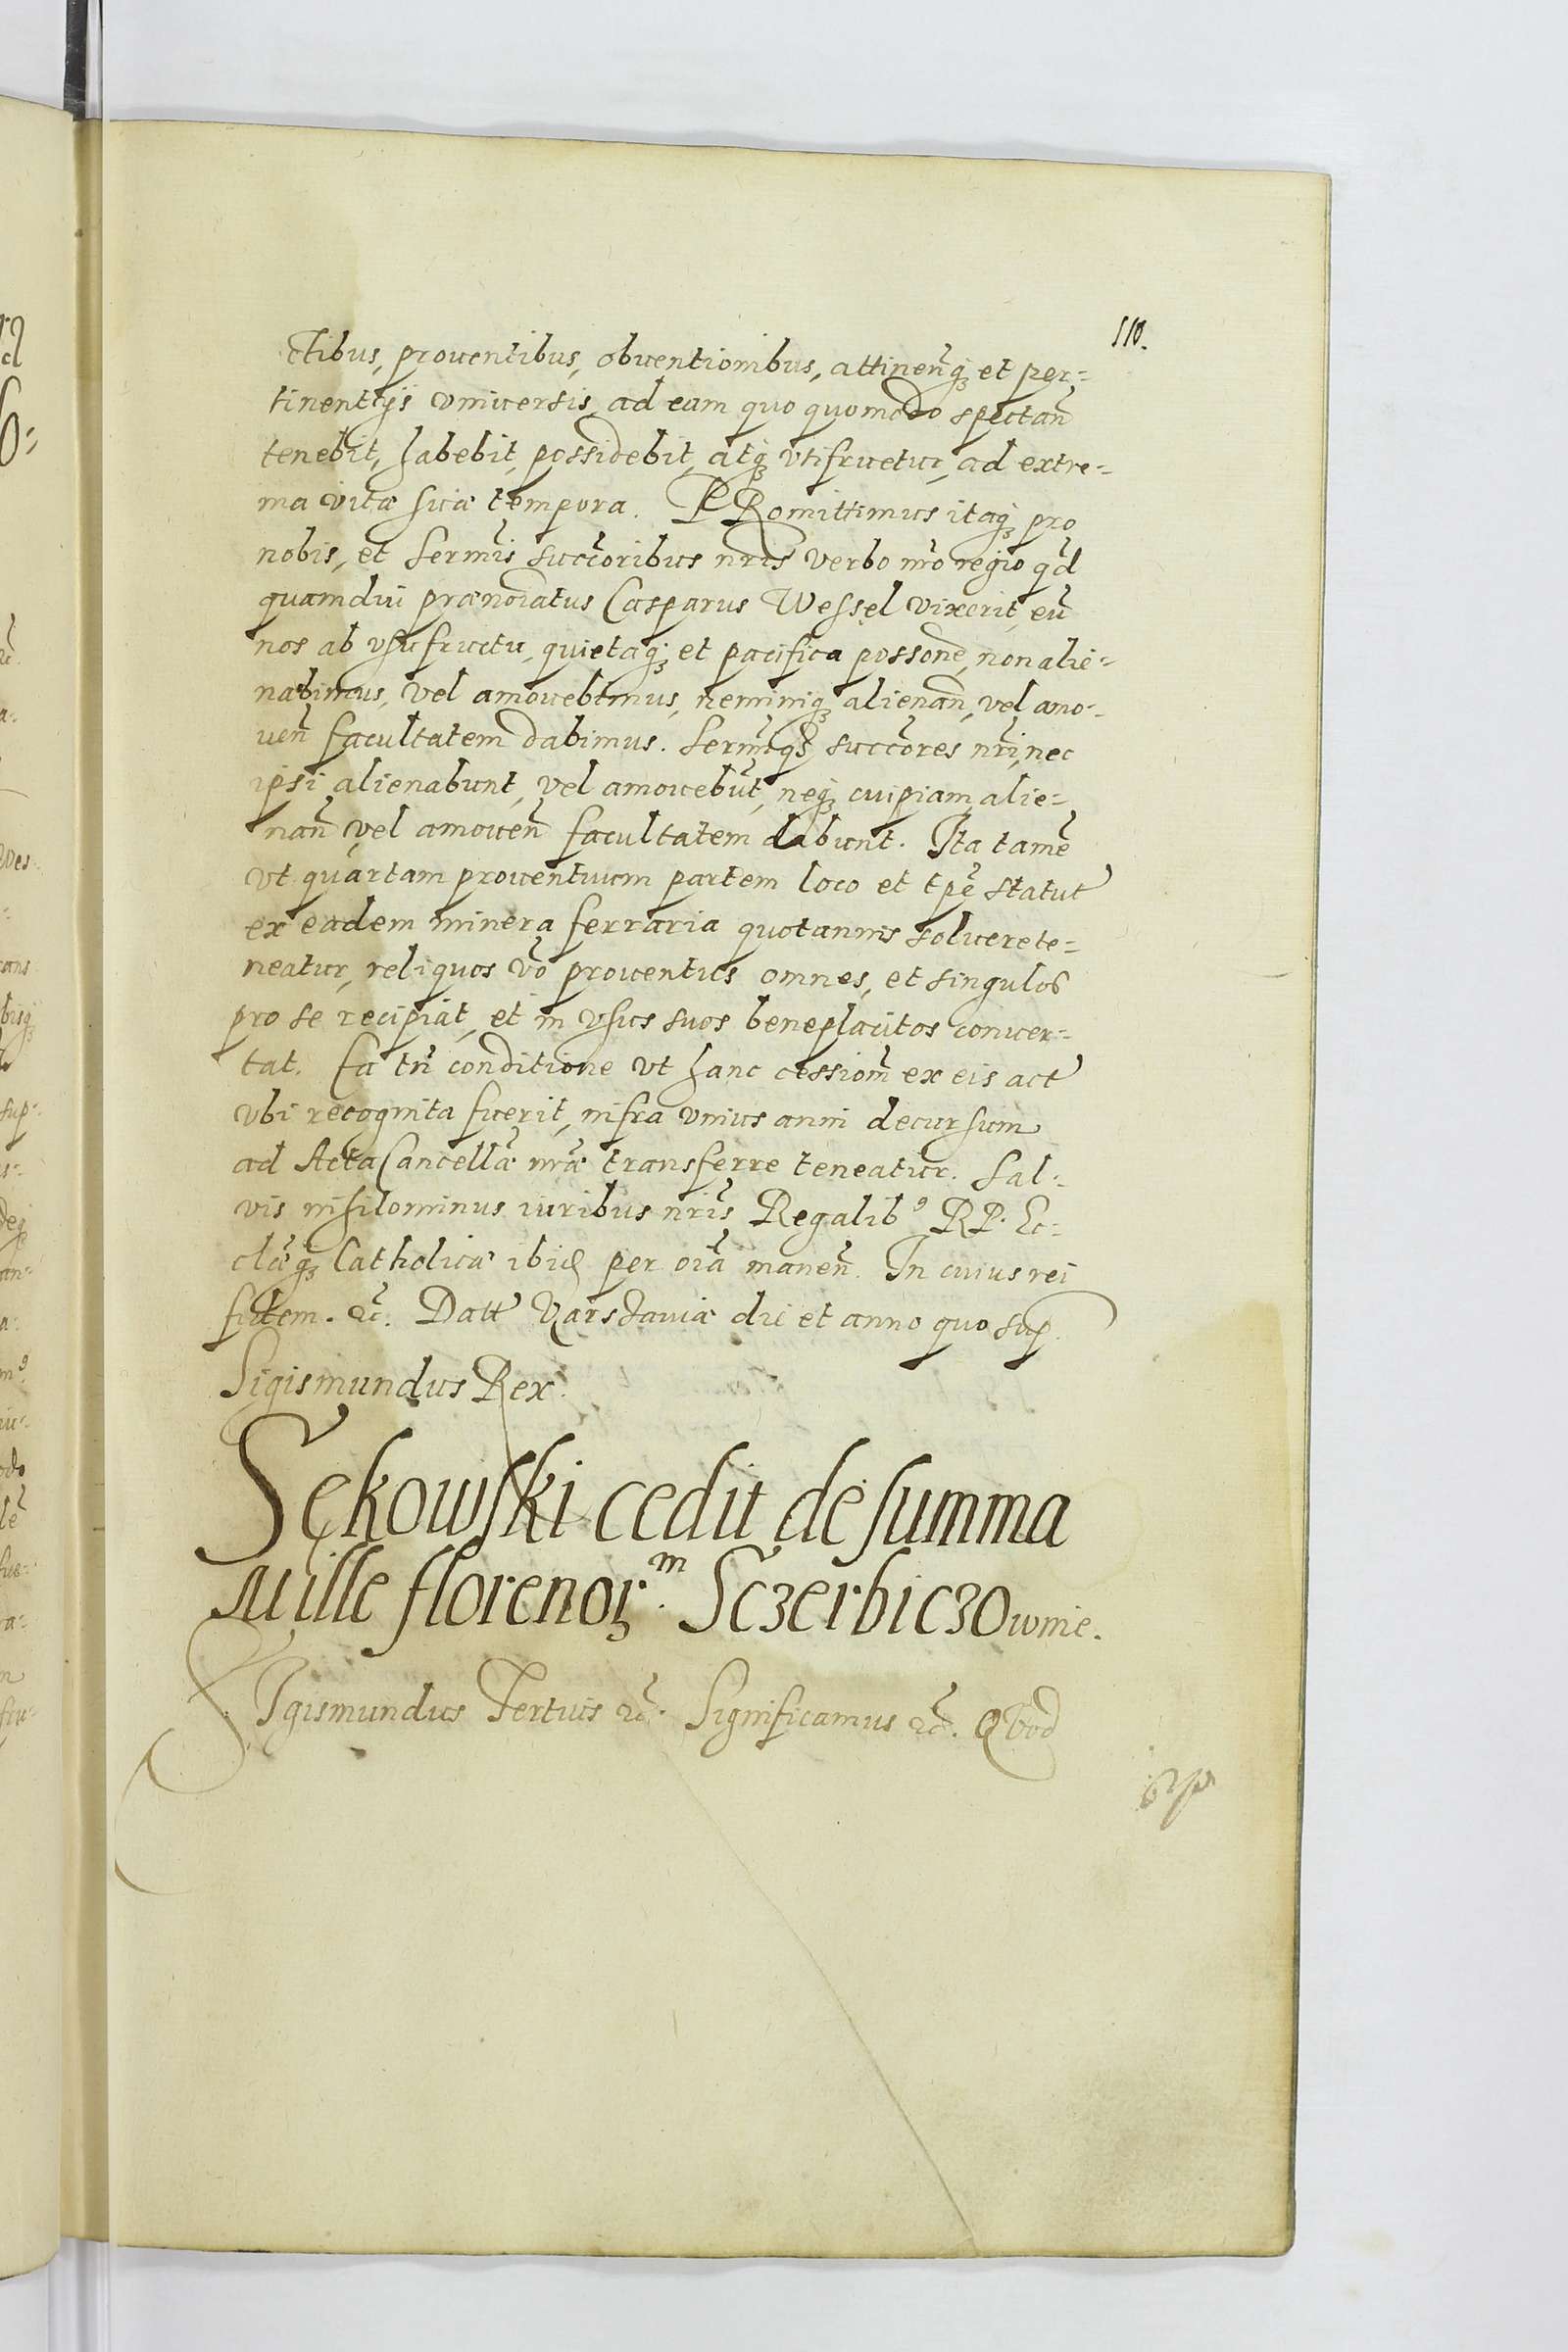 110.
ctibus, prouentibus, obuentionibus, attineñqꝫ et per-
tinentijs vniuersis, ad eam quo quomodo spectañ
tenebit, habebit, possidebit, atqꝫ vtifruetur, ad extre-
ma vitæ suæ tempora. PRomittimus itaqꝫ pro
nobis, et Serm̃is succõribus nr̃is verbo nr̃o regio qd̃
quamdiu prænoĩatus Casparus Wessel vixerit, eũ
nos ab vsufructu, quietaqꝫ et pacifica possõne, non alie-
nabimus, vel amouebimus, neminiqꝫ alienañd, vel amo-
ueñ facultatem dabimus. Serm̃iqꝫ succõres nr̃i, nec
ipsi alienabunt, vel amouebũt, neqꝫ cuipiam alie-
nañ vel amoueñ facultatem dabunt. Ita tamẽ
vt quartam prouentuum partem loco et tp̃e statut̃
ex eadem minera ferraria quotannis soluere te-
neatur, reliquos võ prouentus omnes, et singulos
pro se recipiat, et in vsus suos beneplacitos conuer-
tat. Ea tñ conditione vt hanc cessiom̃ ex eis act̃
vbi recognita fuerit, infra vnius anni decursum
ad Acta Cancellæ̃ nr̃æ transferre teneatur. Sal-
vis nihilominus iuribus nr̃is Regalib⁹ RP. Ec-
clæ̃qꝫ Catholicæ ibiđ per oĩa maneñ. In cuius rei
fidem. &c̃. Datt̃ Varschauiæ die et anno quo sup.
Sigismundus Rex.
Sękowski cedit de summa
Mille florenoꝝᵐ. Sczerbiczownie.
SIgismundus Tertius &c̃. Significamus &c̃. QVod